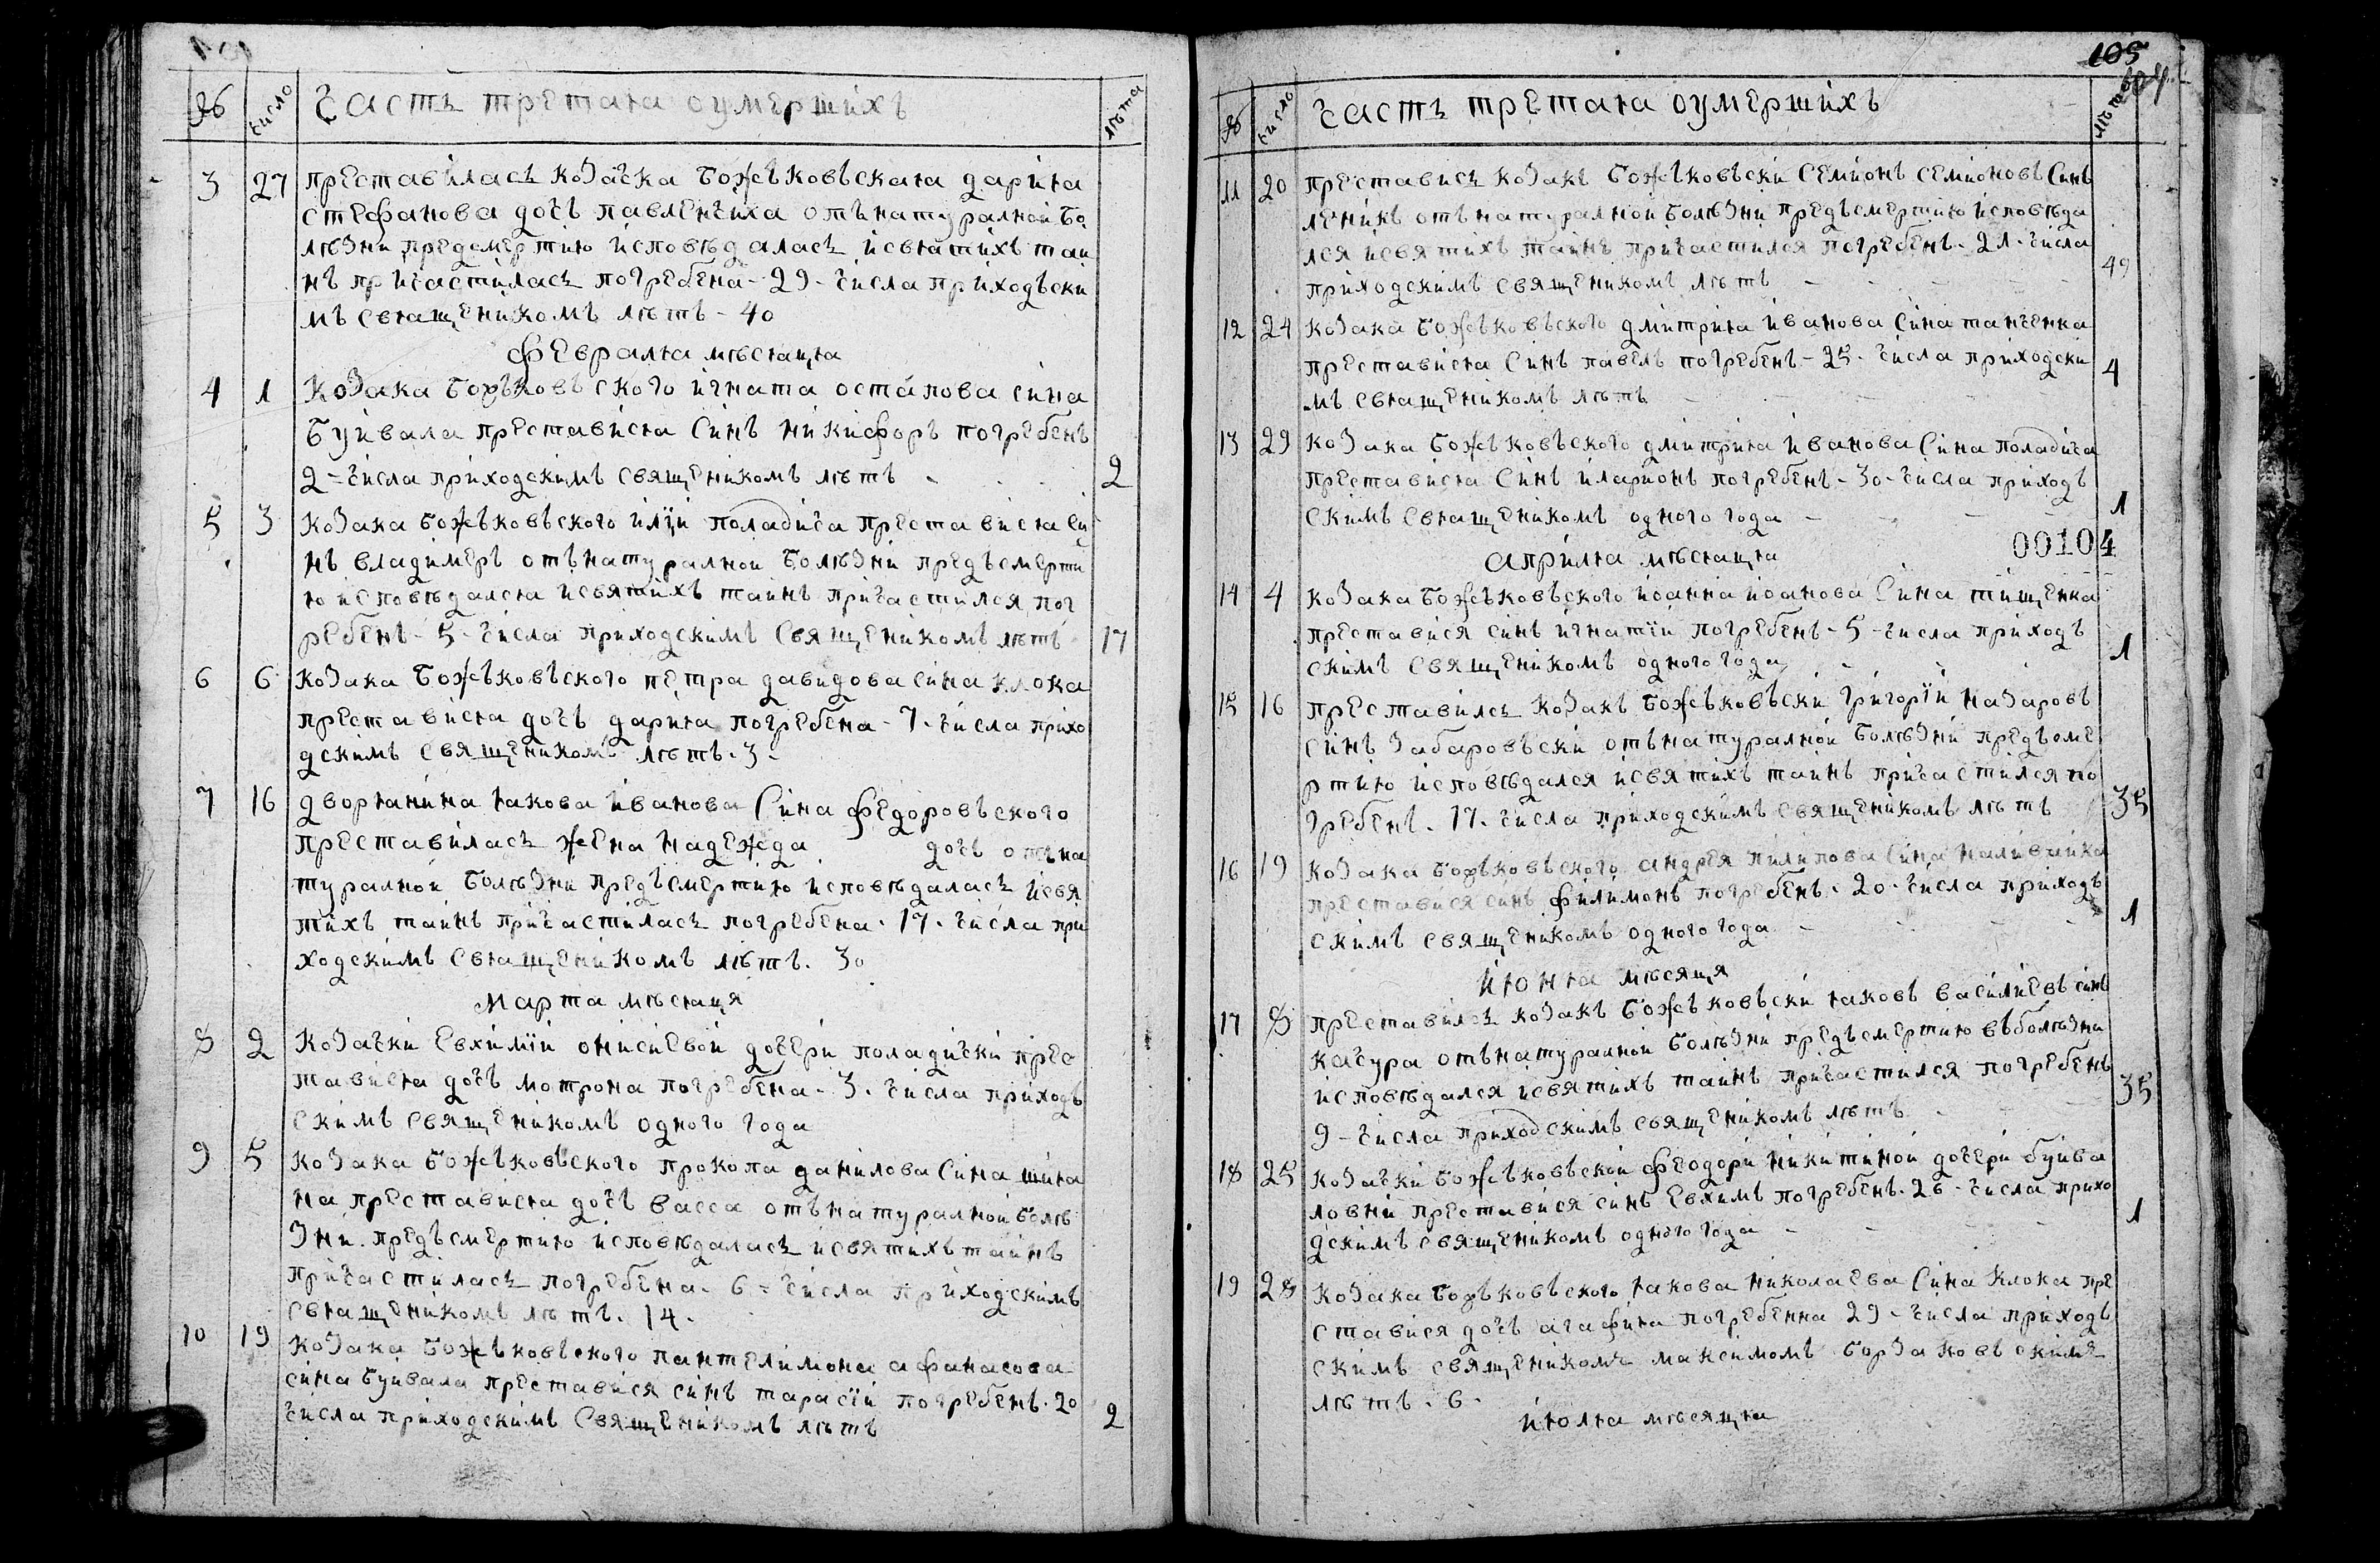 № число Часть третая оумершихъ лѣта
3 27 преставилась козачка божъковъская дария
стефанова дочь павленчиха отънатуралной бо
лѣзни предсмертию исповѣдалась исвятихъ таи
нъ причастилась погребена - 29 - числа приходъски
мъ священикомъ лѣтъ - 40
февраля мѣсяця
4 1 Козака божъковъского игната остапова сина
буивала преставися синъ никифоръ погребенъ
2 - числа приходскимъ священикомъ лѣтъ - 2
5 3 козака божъковъского илїи поладича преставися си
нъ владимеръ отънатуралнои болѣзни предъсмерти
ю исповѣдался исвятихъ таинъ причастился пог
ребенъ - 5 - числа приходскимъ священикомъ лѣтъ 17
6 6 козака божъковъского петра давидова сина клока
преставися дочь дария погребена - 7 - числа прихо
дскимъ священикомъ лѣтъ - 3 -
7 16 дворянина якова иванова сина федоровъского
преставилась жена надежда дочь отъна
туралнои болѣзни предъсмертию исповѣдалась исвя
тихъ таинъ причастилась погребена - 17 - числа при
ходскимъ священикомъ лѣтъ . 30
марта мѣсяця
8 2 Козачки евхимїи онисиевои дочери поладички прес
тавися дочь мотрона погребена - 3 . числа приходъ
скимъ священикомъ одного года
9 5 козака божъковъского прокопа данилова сина шия
на преставися дочь васса отънатуралнои болѣ
зни предъсмертию исповѣдалась исвятихъ таинъ
причастилась погребена - 6 = числа приходскимъ
священикомъ лѣтъ . 14 .
10 19 козака божъковъского пантелимона афанасова
сина буивала преставися синъ тарасїи погребенъ . 20
числа приходскимъ священикомъ лѣтъ 2
105
№ число Часть третая оумершихъ лѣта
11 20 преставись козакъ божъковъски семионъ семионовъ синъ
леникъ отънатуралнои болѣзни предъсмертию исповѣда
лся исвятихъ таинъ причастился погребенъ - 21 - числа
приходскимъ священикомъ лѣтъ - 49
12 24 козака божъковъского дмитрия иванова сина танченка
преставися синъ павелъ погребенъ - 25 - числа приходски
мъ священикомъ лѣтъ 4
13 29 козака божъковъского дмитрия иванова сина поладича
преставися синъ иларионъ погребенъ - 30 - числа приходъ
скимъ священикомъ одного года - 1
00104
априля мѣсяця
14 4 козака божъковъского иоанна иоанова сина тищенка
преставися синъ игнатїи погребенъ - 5 - числа приходъ
скимъ священикомъ одного года 1
15 16 преставилсь козакъ божъковъски григорїи назаровъ
синъ забаровъски отънатуралнои болѣзни предъсме
ртию исповѣдался исвятихъ таинъ причастился по
гребенъ . 17 . числа приходскимъ священикомъ лѣтъ 35
16 19 козака божъковъского андрея пилипова сина наливаика
преставися синъ филимонъ погребенъ . 20 . числа приходъ
скимъ священикомъ одного года - 1
июня мѣсяця
17 8 преставилсь козакъ божъковъски яковъ василиевъ синъ
качура отънатуралнои болѣзни предъсмертию въболѣзни
исповѣдался исвятихъ таинъ причастился погребенъ
9 - числа приходскимъ священикомъ лѣтъ 35
18 25 козачки божъковъскои феодори никитинои дочери буива
ловни преставися синъ евхимъ погребенъ . 26 - числа прихо
дскимъ священикомъ одного года - 1
19 28 козака божъковъского якова николаева сина клока пре
ставися дочь агафия погребенна 29 - числа приходъ
скимъ священикомъ максимомъ борзаковъскимъ
лѣтъ . 6 .
июля мѣсяця